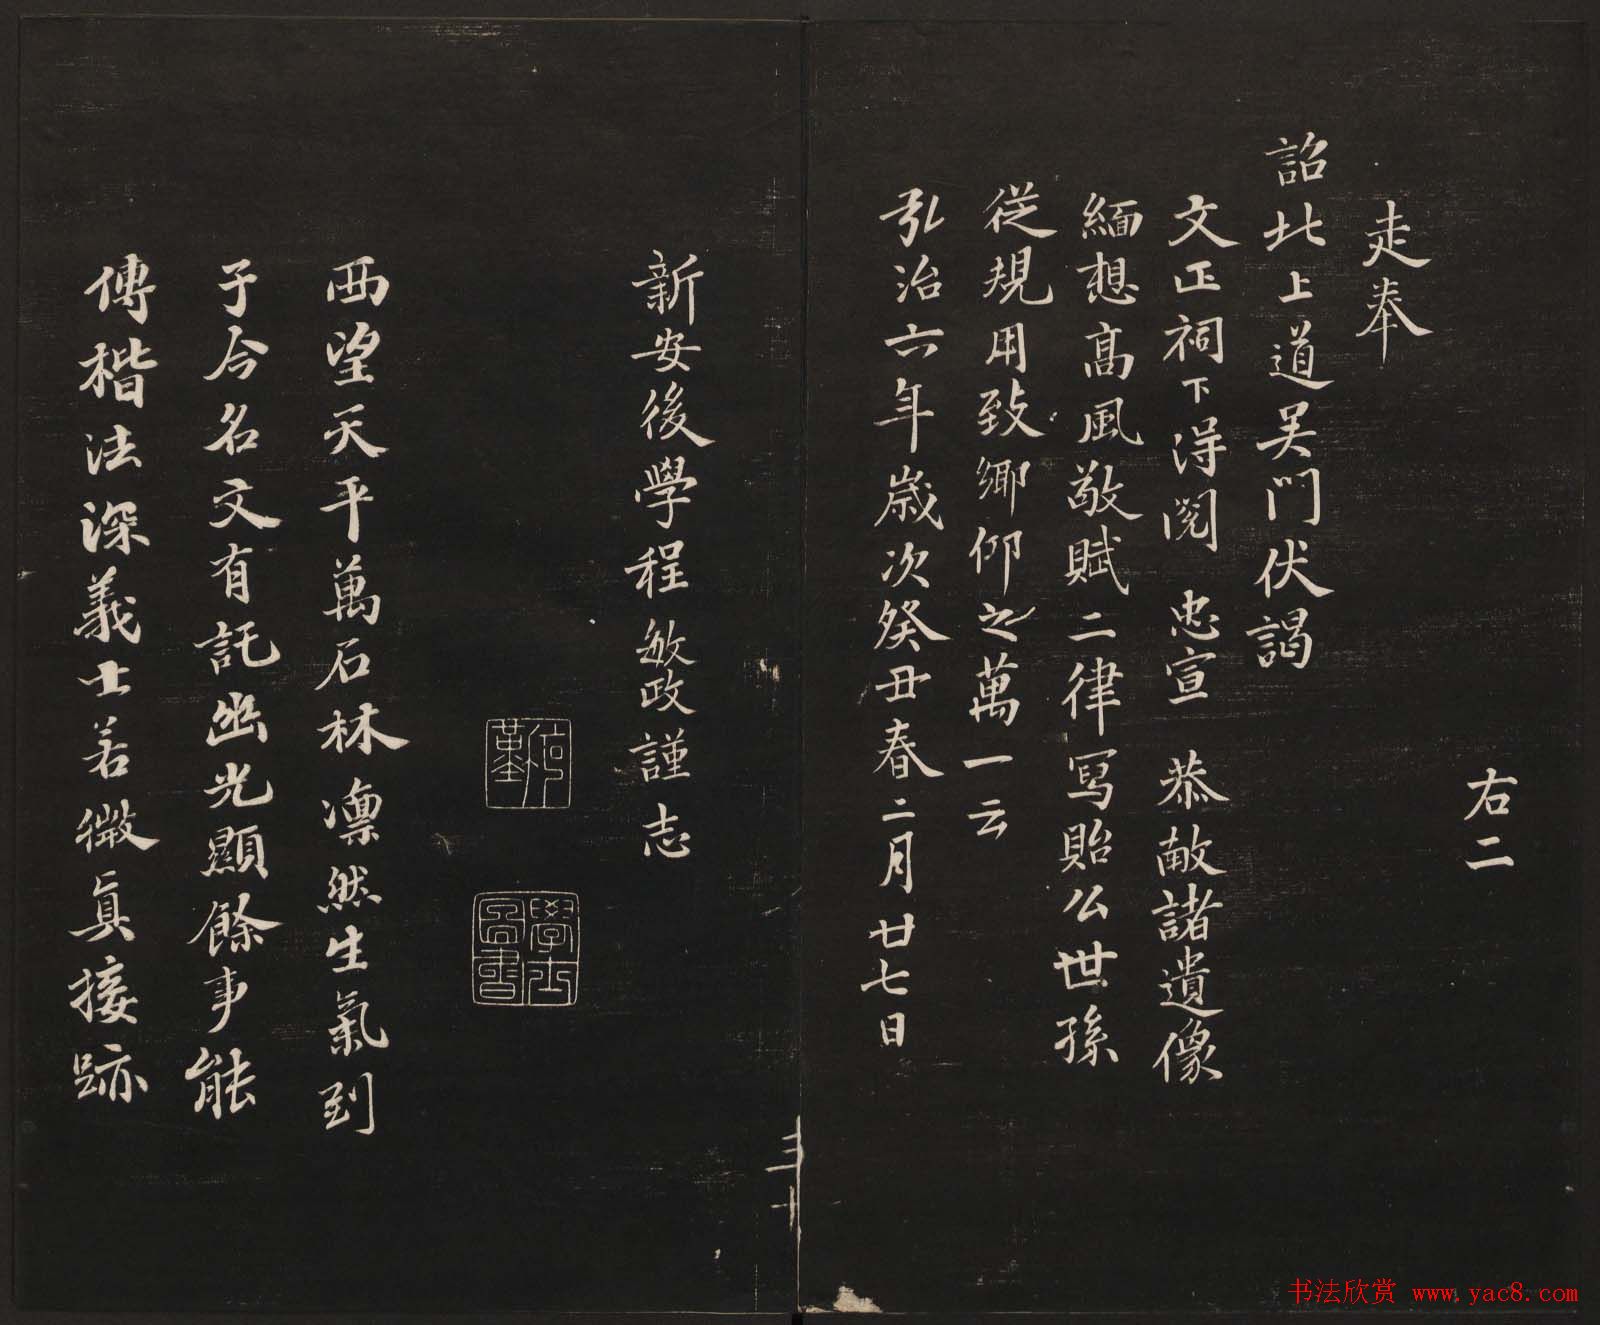 右二
走奉
詔北上道吴門伏謁
文正祠下得閲 忠宣 恭獻諸遺像
緬想高風敬賦二律寫貽公世孫
從規用致鄉仰之萬一云
弘治六年歲次癸丑春二月廿七日
新安後學程敏政謹志
學士
圖書
西望天平萬石林凛然生氣到
于今名文有託幽光顯餘事能
傳楷法深義士若微真接跡
三十
书法欣赏 www.yac8.com